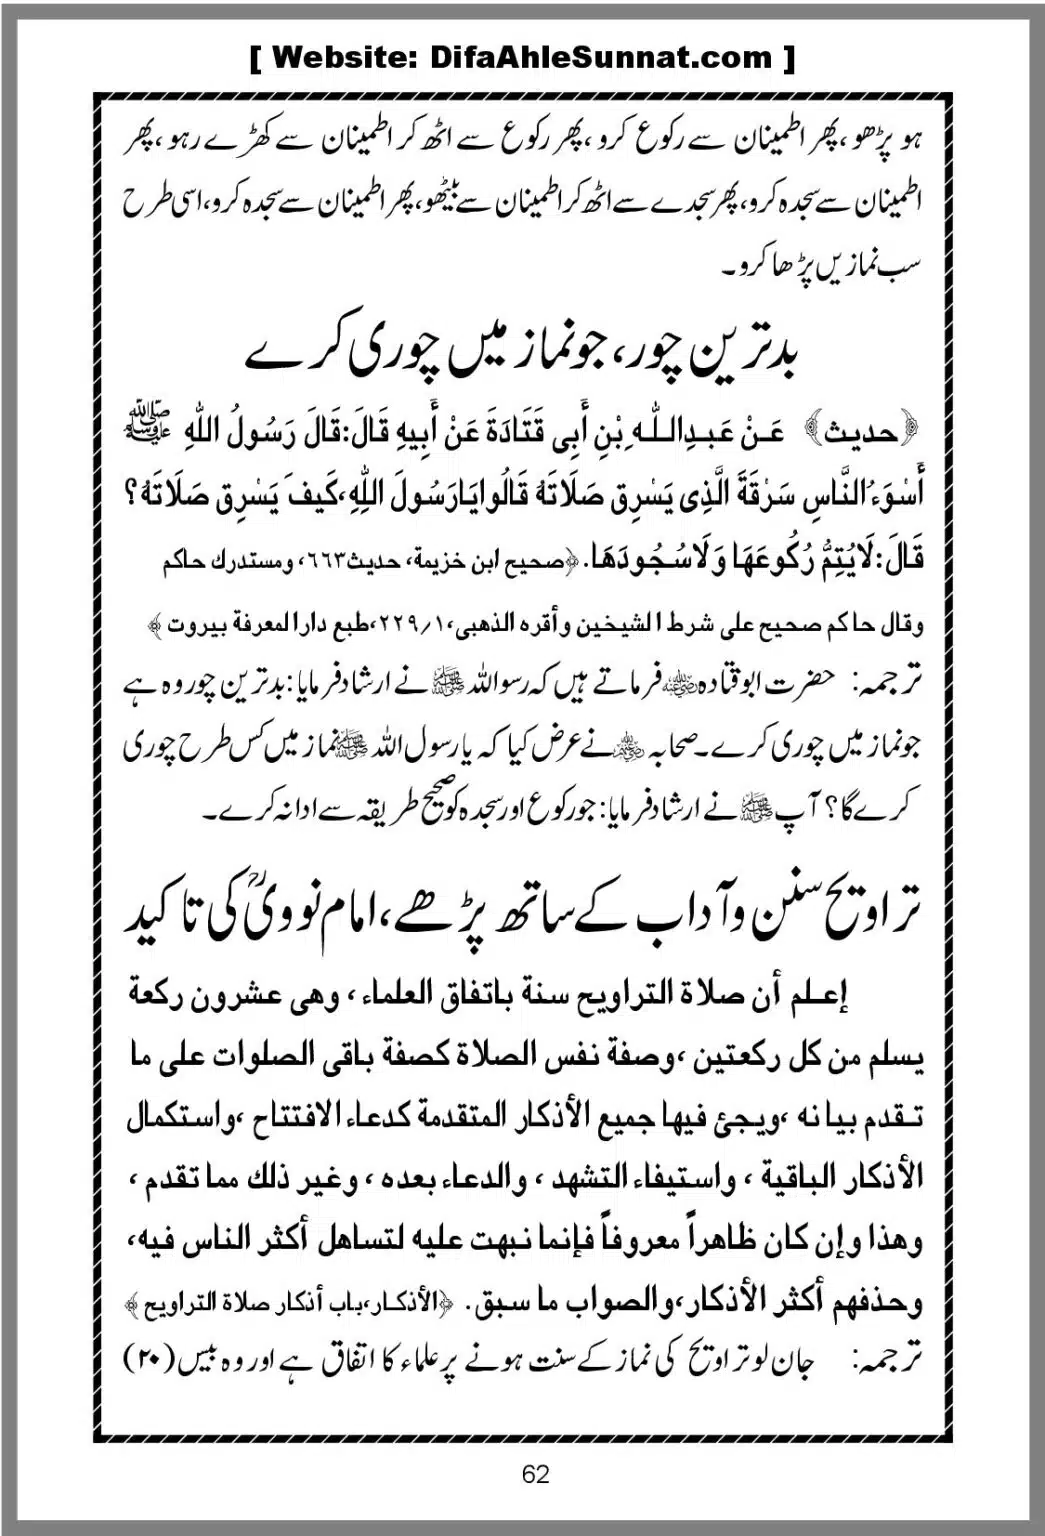 [ Website: DifaAhleSunnat.com ]
ہو پڑھو، پھر اطمینان سے رکوع کرو، پھر رکوع سے اٹھ کر اطمینان سے کھڑے رہو، پھر
اطمینان سے سجدہ کرو، پھر سجدے سے اٹھ کر اطمینان سے بیٹھو، پھر اطمینان سے سجدہ کرو، اسی طرح
سب نمازیں پڑھا کرو۔
بدترین چور، جو نماز میں چوری کرے
﴿حدیث﴾ عَنْ عَبدِاللّٰهِ بْنِ أَبِی قَتَادَةَ عَنْ أَبِیهِ قَالَ:قَالَ رَسُولُ اللّٰهِ ﷺ
أَسْوَءُ النَّاسِ سَرْقَةً الَّذِی یَسْرِق صَلَاتَهُ قَالُوا یَارَسُولَ اللّٰهِ،کَیفَ یَسْرِق صَلَاتَهُ؟
قَالَ:لَایُتِمُّ رُکُوعَهَا وَلَاسُجُودَهَا. ﴿صحیح ابن خزیمة، حدیث٦٦٣، ومستدرك حاکم
وقال حاکم صحیح علی شرط الشیخین وأقره الذهبی،١/٢٢٩،طبع دارالمعرفة بیروت﴾
ترجمہ: حضرت ابو قتادہ رضی اللہ عنہ فرماتے ہیں کہ رسول اللہ ﷺ نے ارشاد فرمایا: بدترین چور وہ ہے
جو نماز میں چوری کرے۔ صحابہ رضی اللہ عنہم نے عرض کیا کہ یا رسول اللہ ﷺ نماز میں کس طرح چوری
کرے گا؟ آپ ﷺ نے ارشاد فرمایا: جو رکوع اور سجدہ کو صحیح طریقہ سے ادا نہ کرے۔
تراویح سنن و آداب کے ساتھ پڑھے، امام نوویؒ کی تاکید
إعلم أن صلاة التراویح سنة باتفاق العلماء، وهی عشرون رکعة
یسلم من کل رکعتین ،وصفة نفس الصلاة کصفة باقی الصلوات علی ما
تقدم بیانه ،ویجئ فیها جمیع الأذکار المتقدمة کدعاء الافتتاح ،واستکمال
الأذکار الباقیة ، واستیفاء التشهد ، والدعاء بعده ، وغیر ذلك مما تقدم ،
وهذا وإن کان ظاهراً معروفاً فإنما نبهت علیه لتساهل أکثر الناس فیه،
وحذفهم أکثر الأذکار،والصواب ما سبق. ﴿الأذکار،باب أذکار صلاة التراویح﴾
ترجمہ: جان لو تراویح کی نماز کے سنت ہونے پر علماء کا اتفاق ہے اور وہ بیس (۲۰)
62